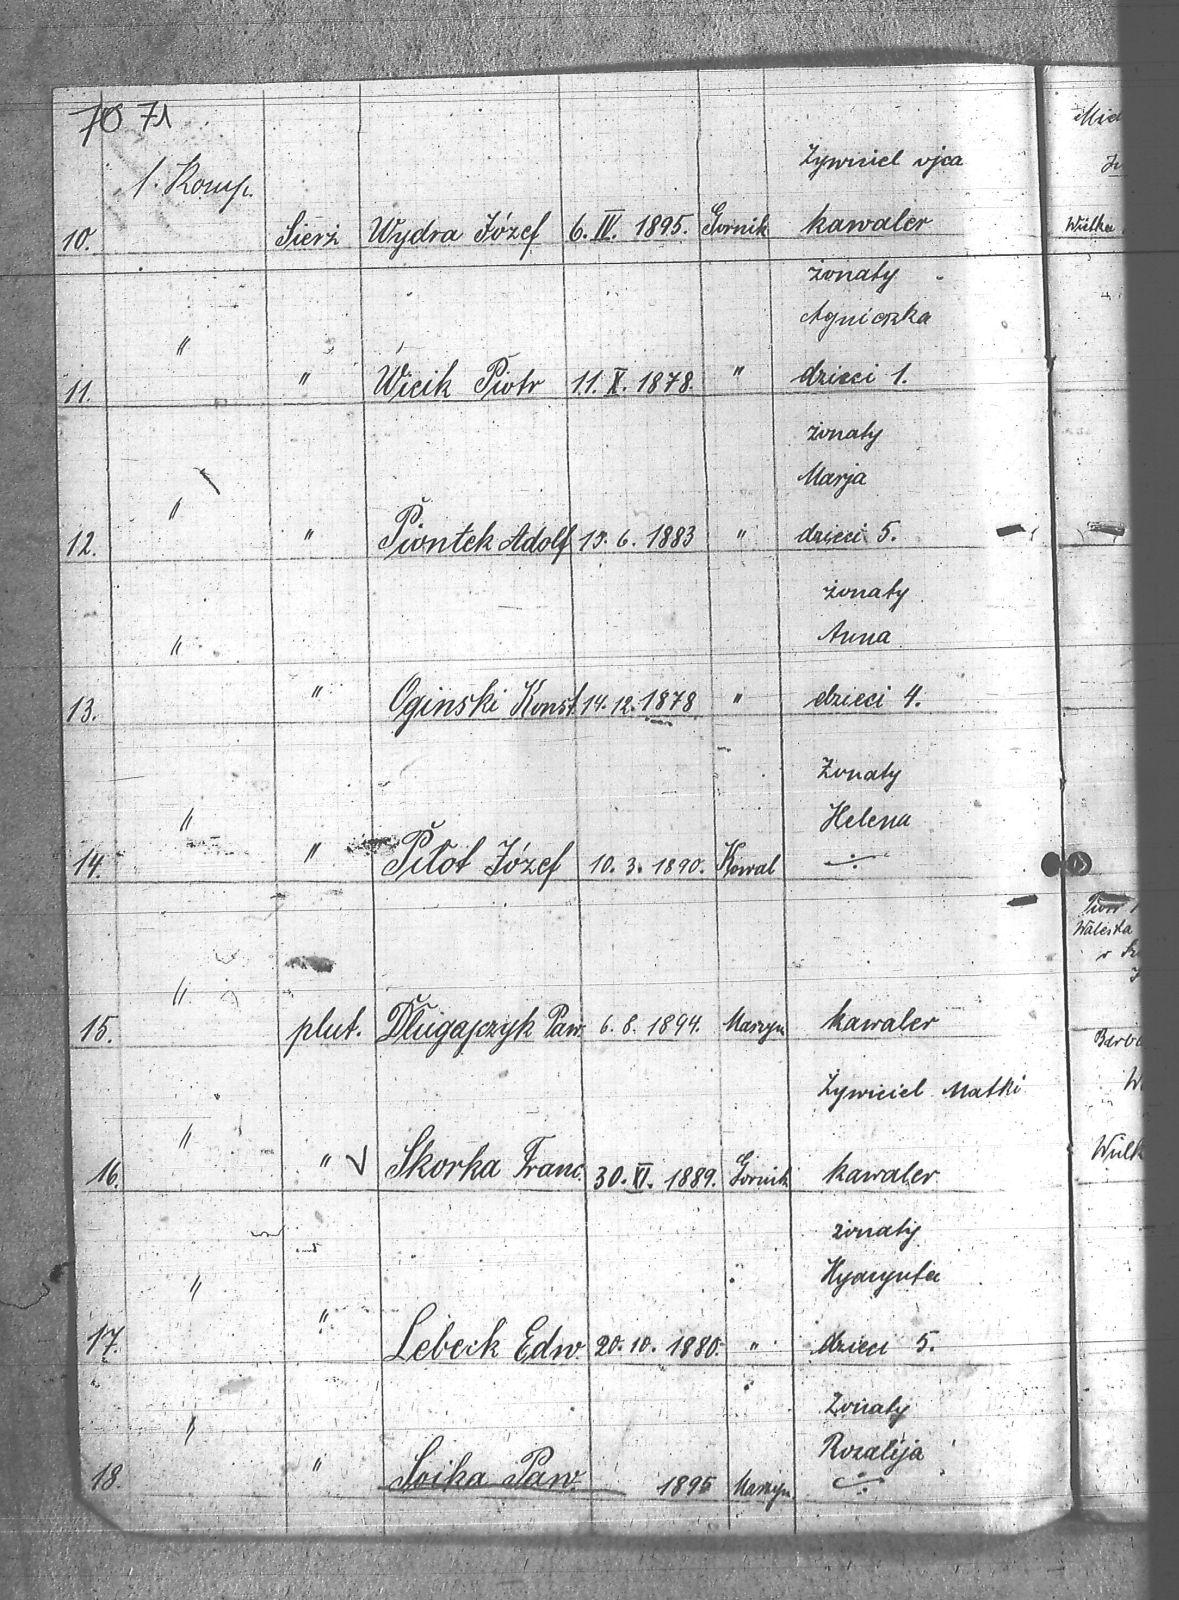 70 71
1. Komp.
Żywiciel ojca
10. Sierż Wydra Józef 6. IV. 1895. Górnik kawaler
żonaty
Agnieszka
11. " " Wicik Piotr 11. X. 1878. " dzieci 1.
żonaty
Marja
12. " " Piontek Adolf 6. 1883 " dzieci 5.
żonaty
Anna
13. " " Oginski Konst. 14. 12. 1878 " dzieci 4.
Żonaty
Helena
14. " " Pilot Józef 10. 3. 1890. Kowal
15. " plut. Długajczyk Paw. 6. 8. 1894. Maszyn kawaler
Żywiciel Matki
16. " " Skorka Franc. 30. VI. 1889. Górnik kawaler
żonaty
Hyacynta
17. " " Lebcik Edw. 20. 10. 1880. " dzieci 5.
Żonaty
Rozalija
18. " " Soika Paw. 1895 Maszyn